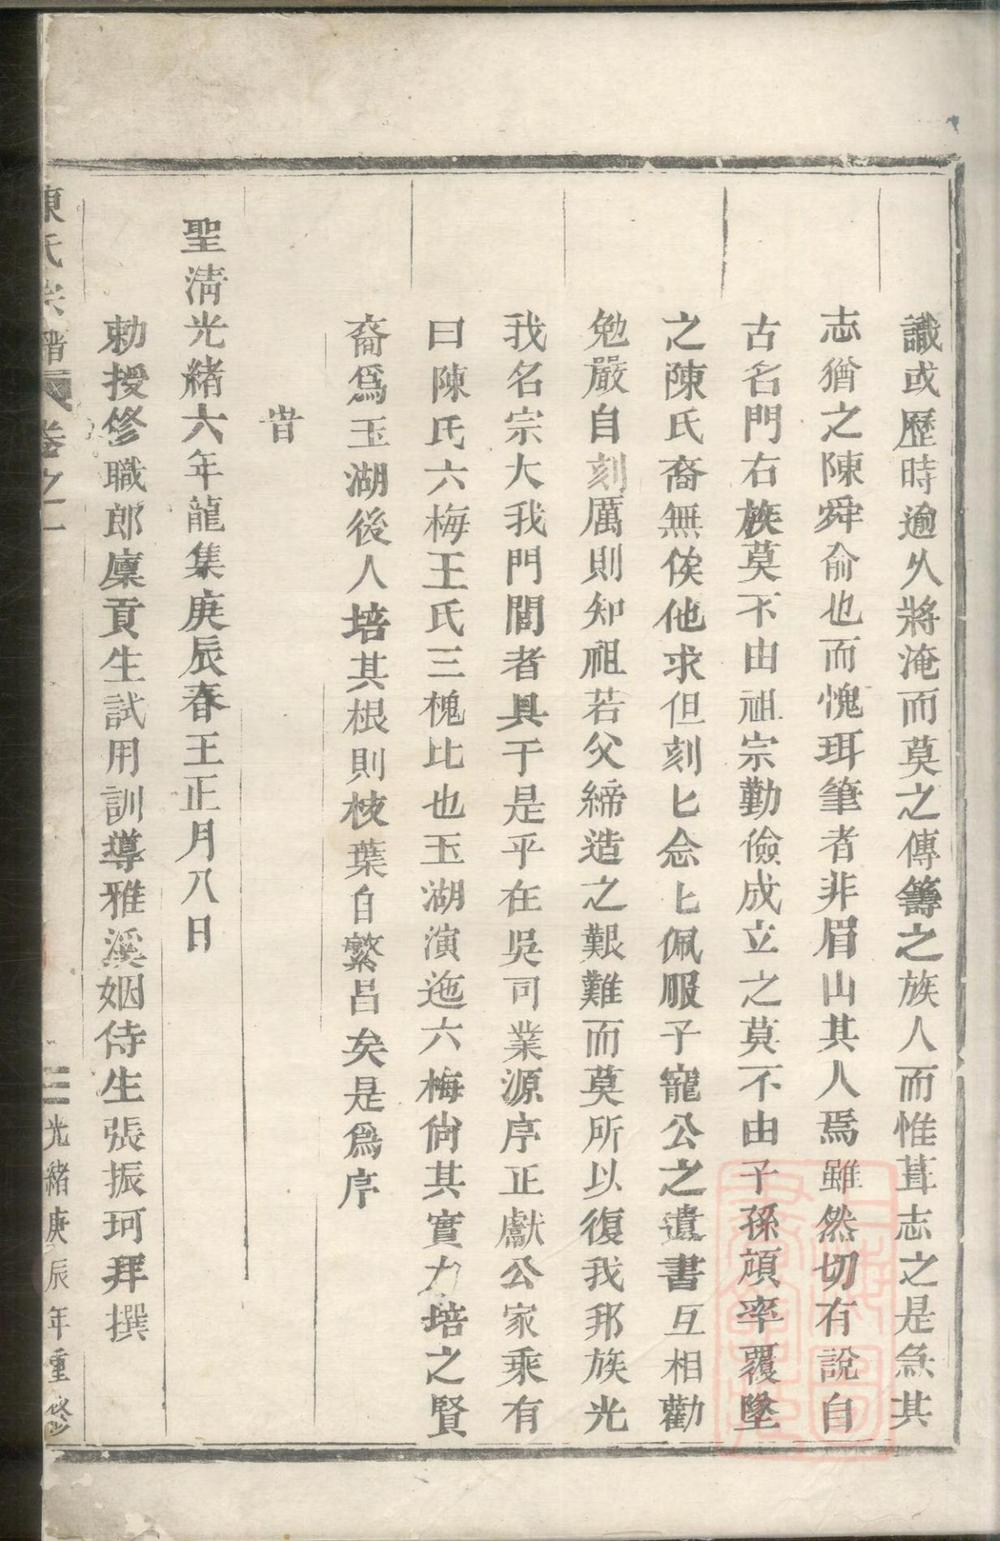 識或歷時逾久將淹而莫之傳籌之族人而惟葺志之是急其
志猶之陳舜俞也而愧珥筆者非眉山其人焉雖然切有說自
古名門右族莫不由祖宗勤儉成立之莫不由子孫頑率覆墜
之陳氏裔無俟他求但刻匕念匕佩服子寵公之遺書互相勸
勉嚴自刻厲則知祖若父締造之艱難而莫所以復我邦族光
我名宗大我門閭者具于是乎在吳司業源序正獻公家乘有
曰陳氏六梅王氏三槐比也玉湖演迤六梅倘其實力培之賢
裔爲玉湖後人培其根則枝葉自繁昌矣是爲序
旹
聖清光緒六年龍集庚辰春王正月八日
勅授修職郎廩貢生試用訓導雅溪姻侍生張振珂拜撰
陳氏宗譜 卷之一 三 光緒庚辰年重修